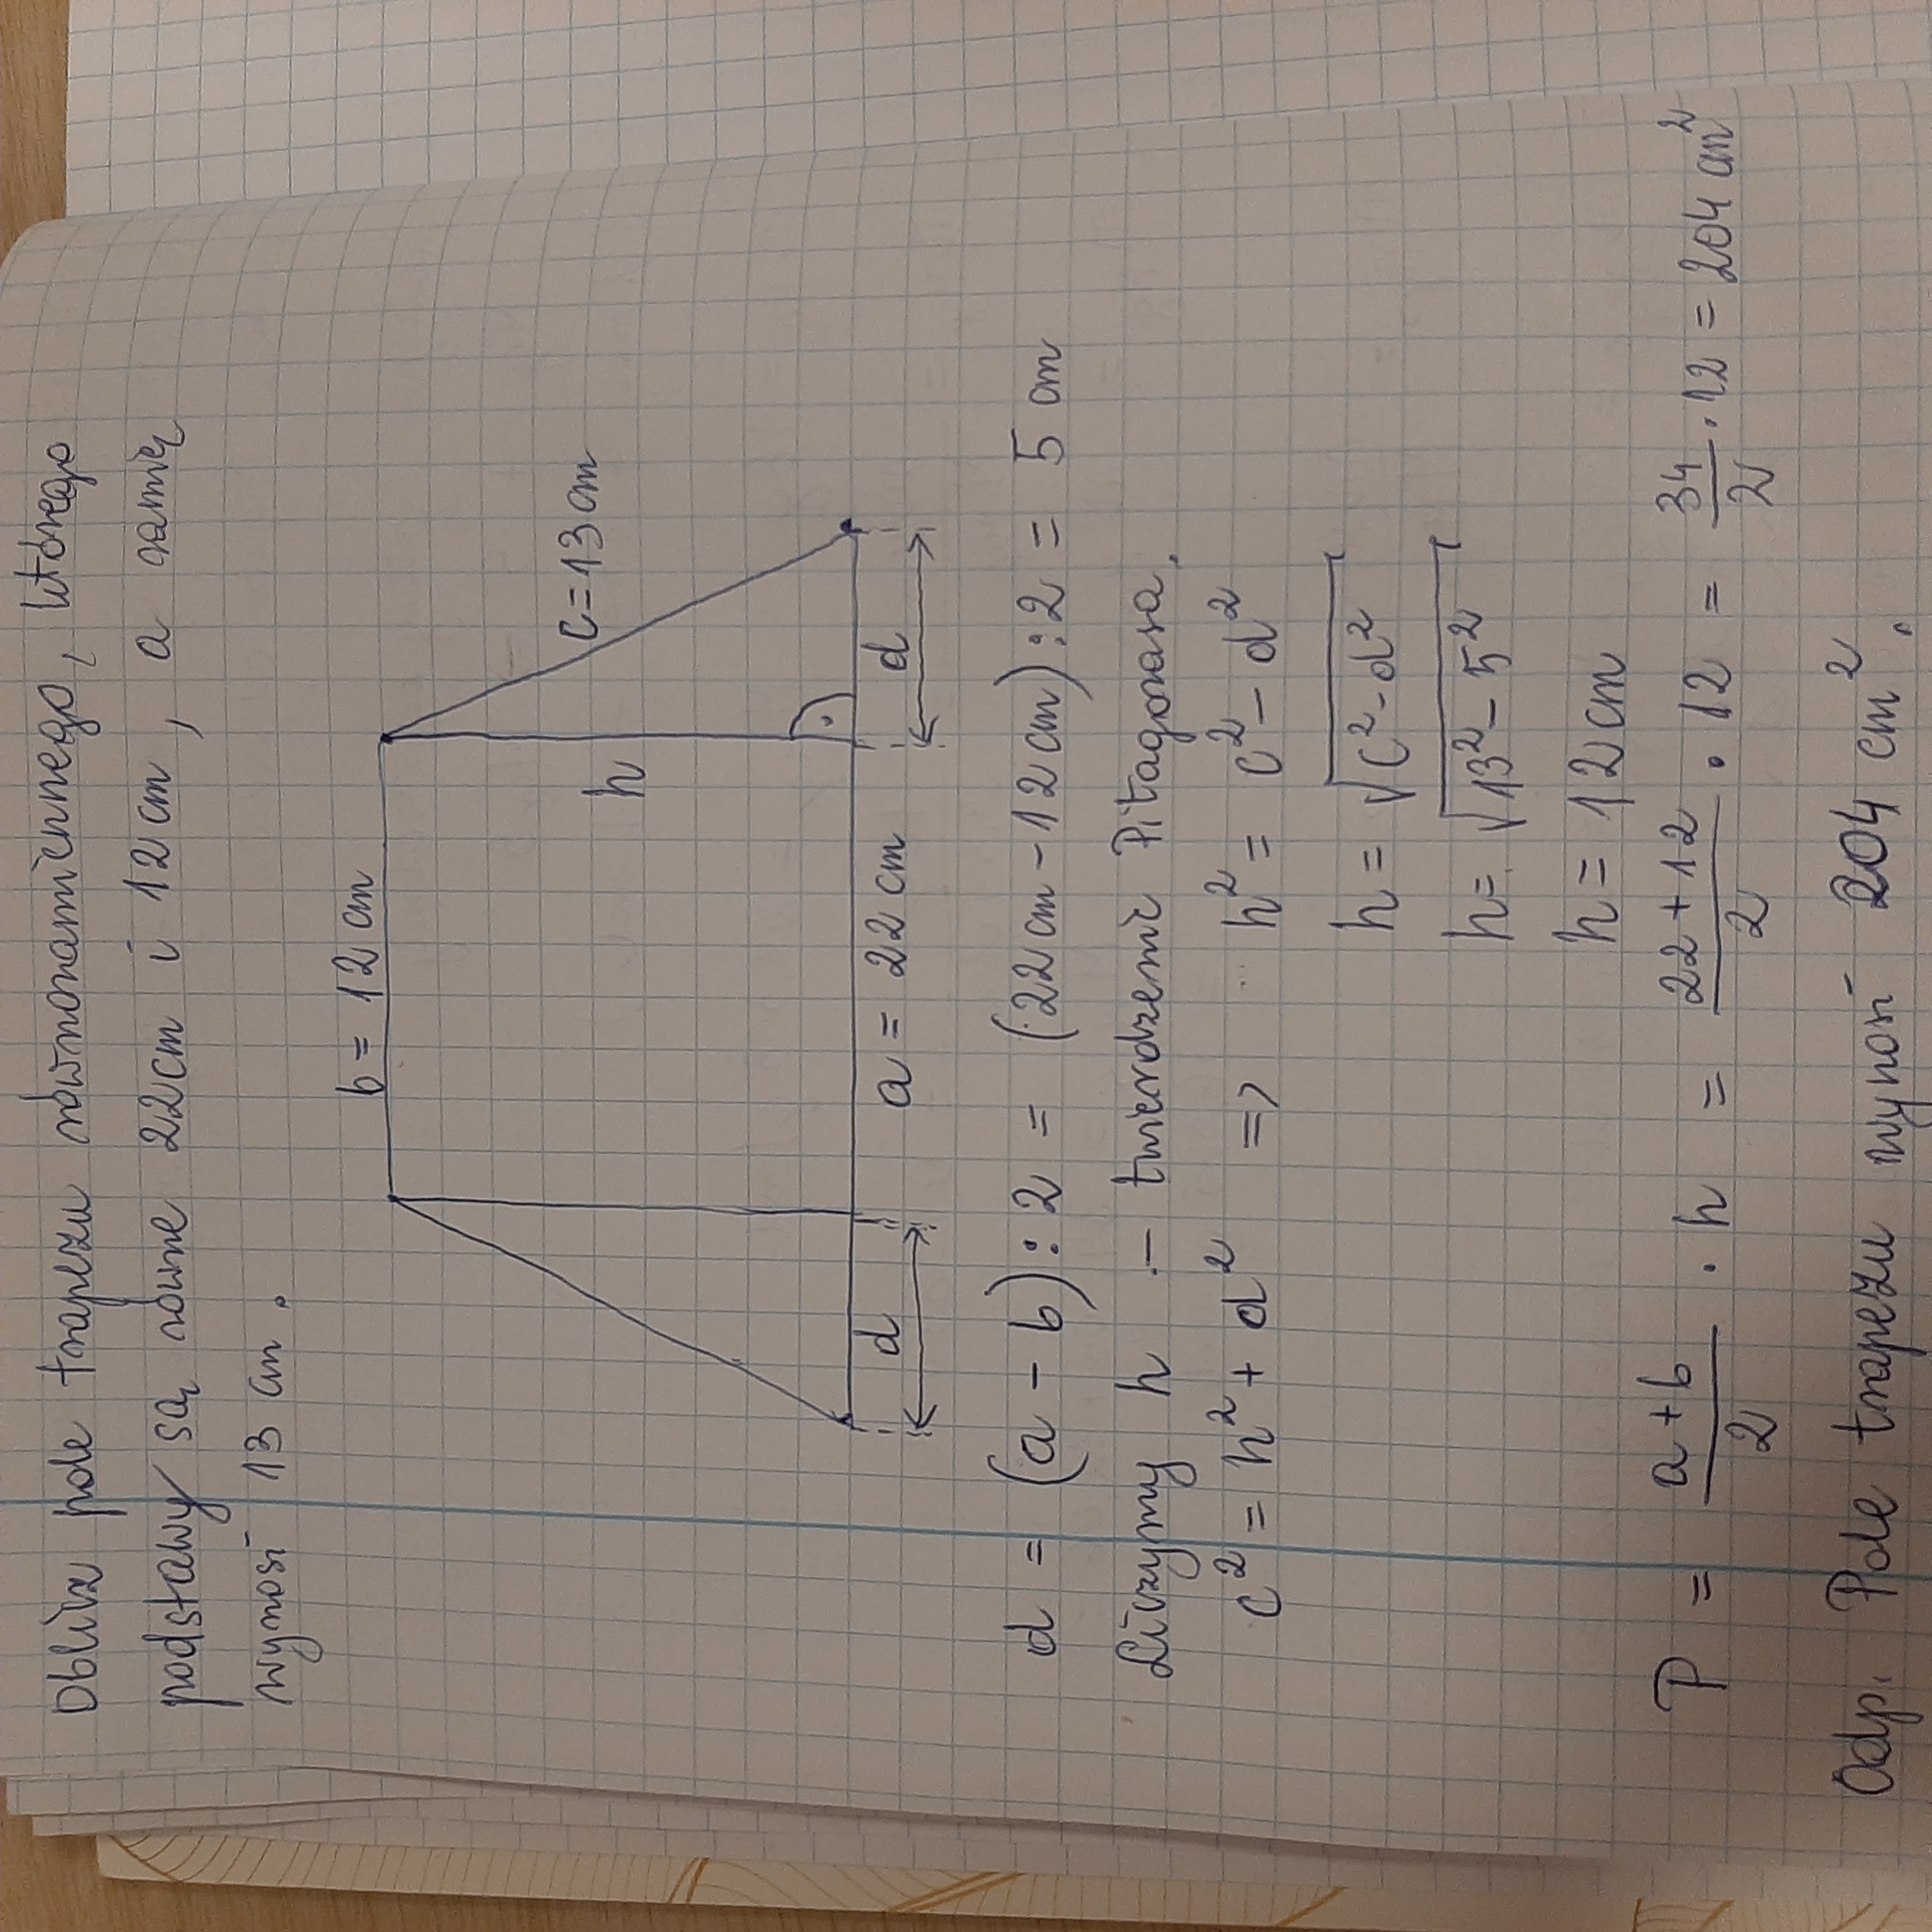 Oblicz pole trapezu równoramiennego, którego
podstawy są równe 22cm i 12cm, a ramię
wynosi 13 cm.
b = 12 cm
c = 13 cm
h
d
a = 22 cm
d
d = (a - b) : 2 = (22 cm - 12 cm) : 2 = 5 cm
Liczymy h - twierdzenie Pitagorasa.
c² = h² + d² => h² = c² - d²
h = √c² - d²
h = √13² - 5²
h = 12 cm
P = \frac{a + b}{2} · h = \frac{22 + 12}{2} · 12 = \frac{34}{2} · 12 = 204 cm²
Odp. Pole trapezu wynosi 204 cm².